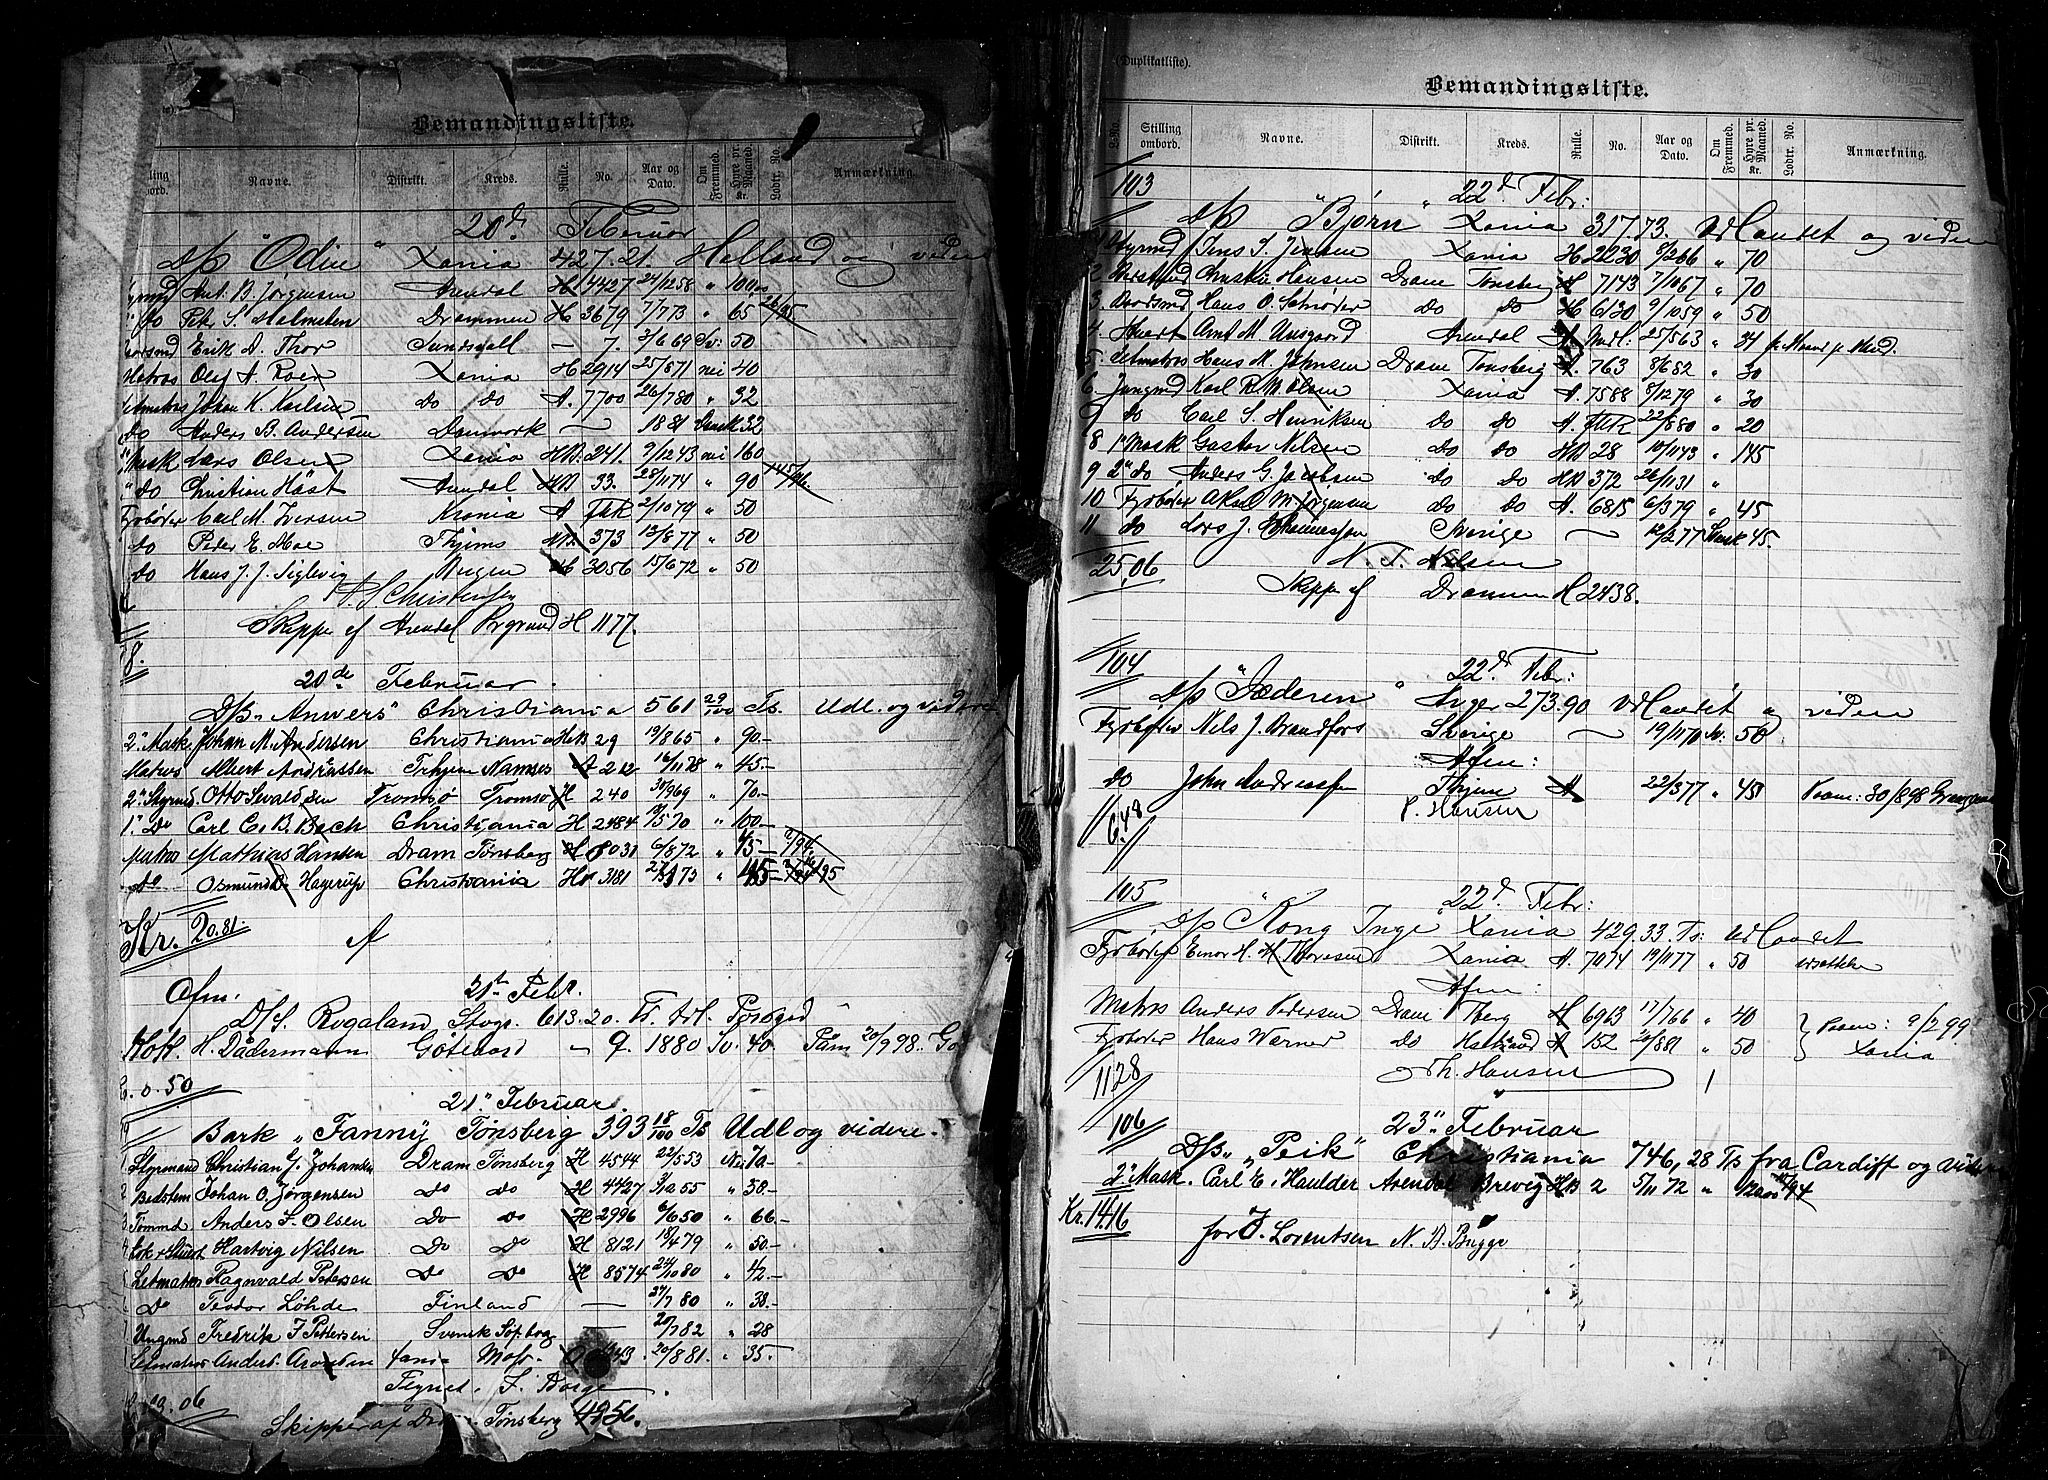 Bemandingsliste.
Navne. Distrikt. Kreds. Rulle. No. Aar og Dato. Om Fremmed. Hyre pr. Maaned. Kr. Lodtr. No. Anmærkning.
20de Februar
D/S "Odin" Xania 427.21. Holland og videre
Ant. B. Jørgensen Arendal H 4427 24/12 58 " 100
do Petr S. Malmsten Drammen H 3679 7/7 73 " 65
Erik A. Thor Sundsvall — 7. 3/6 69 Sv: 50
Matros Olaf A. Roer Xania H 2914 25/8 71 nei 40
Letmatros Johan K. Karlsen do do A. 7700 26/7 80 " 32
do Anders B. Andersen Danmark — 1881 Dansk 32
Mask Lars Olsen Xania HB. 241. 9/12 43 nei 160
" do Christian Høst Arendal HB 33. 28/11 74 " 90
Fyrbøder Carl M. Iversen Xania A ftk 2/10 79 " 50
do Peder E. Moe Thjems HB 373 13/8 77 " 50
do Hans J. J. Siglevig Bergen HB 3056 15/6 72 " 50
P. S. Christensen
Skipper af Arendal Porsgrund H 1177.
20de Februar.
D/S. "Anvers" Christiania 561 29/100 Ts. Udl. og videre
2. Mask. Johan M. Andersen Christiania HB 29 19/8 65 " 90.-
Matros Albert Andreassen Trhjem Namsos A 212 16/11 78 " 45.-
2. Styrmd Otto Sevaldsen Tromsø Tromsø H 240 30/9 69 " 70.-
1. Do Carl C. B. Bech Christiania H 2484 /5 70 " 100.-
Matros Mathias Hansen Dram Tønsberg H 8031 6/8 72 "
Do Osmund B. Hagerup Christiania H 3181 73 " 45.-
Kr. 20.81.
Afm. 21st Febr.
D/S. Rogaland Stvgr. 613.20. Ts.
Kok H. Dädermann Göteborg — 9. 1880 Sv. 40. Paam 20/9 98. G
0.50
21. Februar.
Bark "Fanny" Tønsberg 393 18/100 Ts Udl og videre.
Styrmand Christian J. Johansen Dram Tønsberg H 4544 22/5 53 Nei 70.-
2 Bødstem Johan O. Jørgensen Do Do H 4427 3/10 55 " 38.-
3 Tømmd Anders L. Olsen Do Do H 2996 6/6 50 " 66.-
4 Kok & Stuert Hartvig Nilsen Do Do H 8121 18/4 79 " 50.-
Letmatros Ragnvald Petersen Do Do H 8574 24/10 80 " 42.-
Do Teodor Löhde Finland — 27/7 80 " 38.-
Ungmd Fredrik J Pettersen Svensk — 20/7 82 " 28
Letmatros Anders Arontsen Xania 20/8 81. " 35.-
Tegnet.
Skipper af Dram. Tønsberg 4956.
(Duplikatliste).
Bemandingsliste.
Stilling ombord. Navne. Distrikt. Kreds. Rulle. No. Aar og Dato. Om Fremmed. Hyre pr. Maaned. Kr. Lodtr. No. Anmærkning.
103 22de Febr:
D/S "Bjørn" Xania 317.73. Udlandet og videre
1 Styrmd Jens S. Jensen Xania H 2230 8/2 66 " 70
2 Christian Hansen Dram Tønsberg H 7143 7/10 67 " 70
3. Hans O. Schrøder do do H 6130 9/10 59 " 50
4. Stuert Arnt M. Unsgaard Arendal A Indl: 25/5 63 " 84 pr Mand pr Md.
5. Letmatros Hans M. Johnsen Dram Tønsberg A. 763 8/6 82 " 30
6 Jungmd Karl R. M. Olsen Xania A. 7588 8/12 79 " 30
7 do Carl S. Henriksen do do A. ftk 22/8 80 " 20
8 1" Mask Gustav Nilsen do do HB 28 10/11 43 " 145
9 2" do Anders G. Jacobsen do do HB 372 26/11 31 "
10 Fyrbøder Aksel M. Jørgensen do do A. 6815 6/3 79 " 45
11 do Lars J. Johannesson Sverige — 12/2 77 Svensk 45.
25.06
N. T. Nilsen
Skipper af Drammen H 2438.
104 22de Febr:
D/S "Jæderen" Stvgr 273.90 Udlandet og videre
Fyrbøder Nils J. Brandfors Sverige — 19/11 70 Sv. 50
Afm:
do John Andreassen Thjem A 22/3 77 " 45 Paam: 30/8 98 Grangem
6.48 P. Hansen
105 22de Febr:
D/S "Kong Inge" Xania 429.33. Ts: Udlandet
Fyrbøder Einar H. H. Thoresen Xania A. 7074 19/11 77 " 50
Afm:
Matros Anders Pedersen Dram Tberg H 6963 17/7 66 " 40 } Paam: 9/2 99
Fyrbøder Hans Werner do A 152 20/8 81 " 50 } Xania
11 28 Th. Hansen
106 23. Februar
D/S. "Peik" Christiania 746,28 Ts fra Cardiff og videre
2. Mask. Carl E. Haulder Arendal Brevig HB 2 5/11 72 "
Kr. 14.16 for J. Lorentsen N. B. Bugge